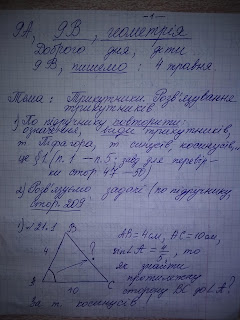 - 1 -
9А, 9В, геометрія
Доброго дня, діти
9В, пишемо: 4 травня.
Тема: Трикутники. Розв'язування
трикутників
1) По підручнику повторити:
означення, види трикутників,
т. Піфагора, т. синусів, косинусів,
це § 1 (п. 1 - п. 5; зад. для перевір-
ки стор. 47 - 50)
2) Розв'язуємо задачі (по підручнику,
стор. 209
1) 21.1
B
AB = 4см, AC = 10см,
4
?
sin∠A = 4/5, то
як знайти
протилежну
сторону BC до ∠A?
A
10
C
За т. косинусів